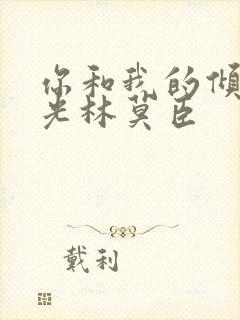 你和我的倾
光林莫臣
戴利